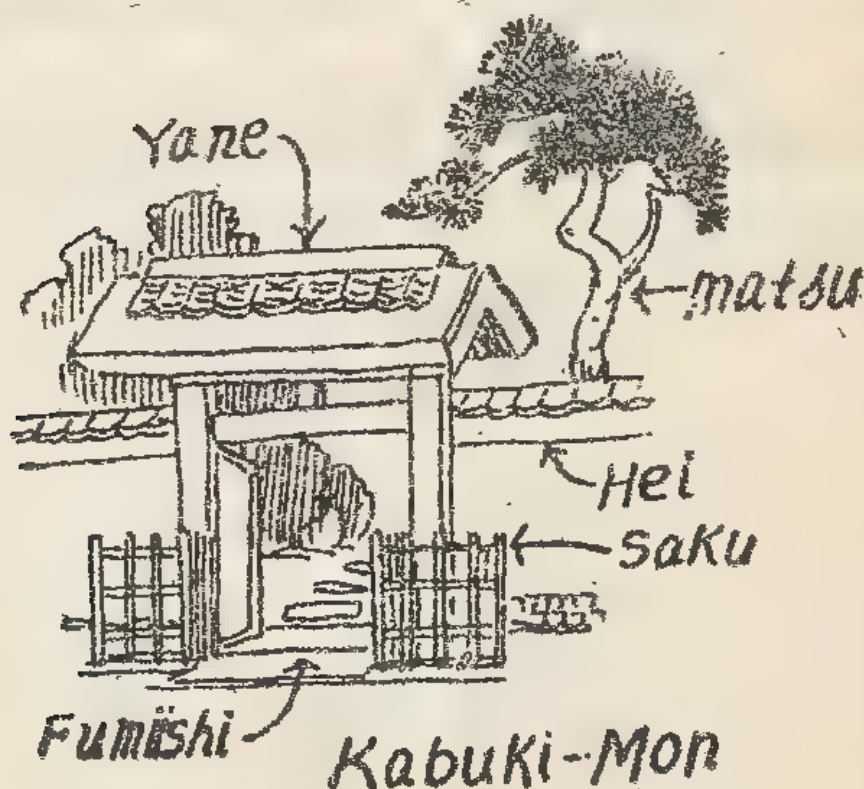 Yane
matsu
Hei
Saku
Fumiishi
Kabuki-Mon